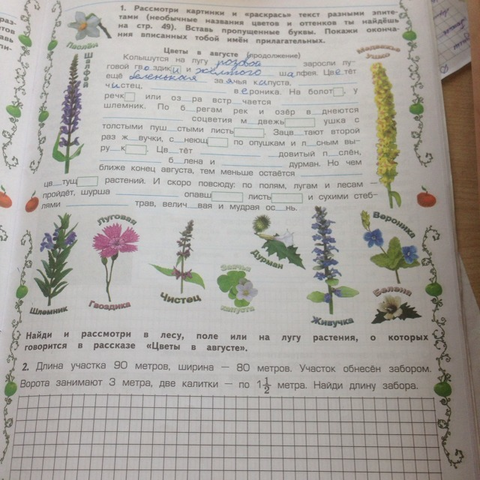 1. Рассмотри картинки и «раскрась» текст разными эпите-
тами (необычные названия цветов и оттенков ты найдёшь
на стр. 49). Вставь пропущенные буквы. Покажи оконча-
ния вписанных тобой имён прилагательных.
Цветы в августе (продолжение)
Колышутся на лугу розовой заросли лу-
говой гвоздики и жёлтого шалфея. Цветёт
ещё беленькая заячья капуста.
чистец, вероника. На болот , у
речк или оз ра встр чается
шлемник. По б регам рек и озёр в днеются
соцветия м двежь ушка с
толстыми пуш стыми листь . Заца тают второй
раз ж вучки, с неющ по опушкам и л сным вы-
ру к . Цв тёт довитый п слён,
б лена и дурман. Но чем
ближе конец августа, тем меньше остаётся
цв тущ растений. И скоро повсюду: по полям, лугам и лесам —
пройдёт, шурша опавш листь и сухими стеб-
лями трав, велич вая и мудрая ос нь.
Шалфей
Медвежье
Луговая
Вероника
Дурман
Белена
Шлемник
Гвоздика
Чистец
Заячья
капуста
Живучка
Найди и рассмотри в лесу, поле или на лугу растения, о которых
говорится в рассказе «Цветы в августе».
2. Длина участка 90 метров, ширина — 80 метров. Участок обнесён забором.
Ворота занимают 3 метра, две калитки — по 1 1/2 метра. Найди длину забора.